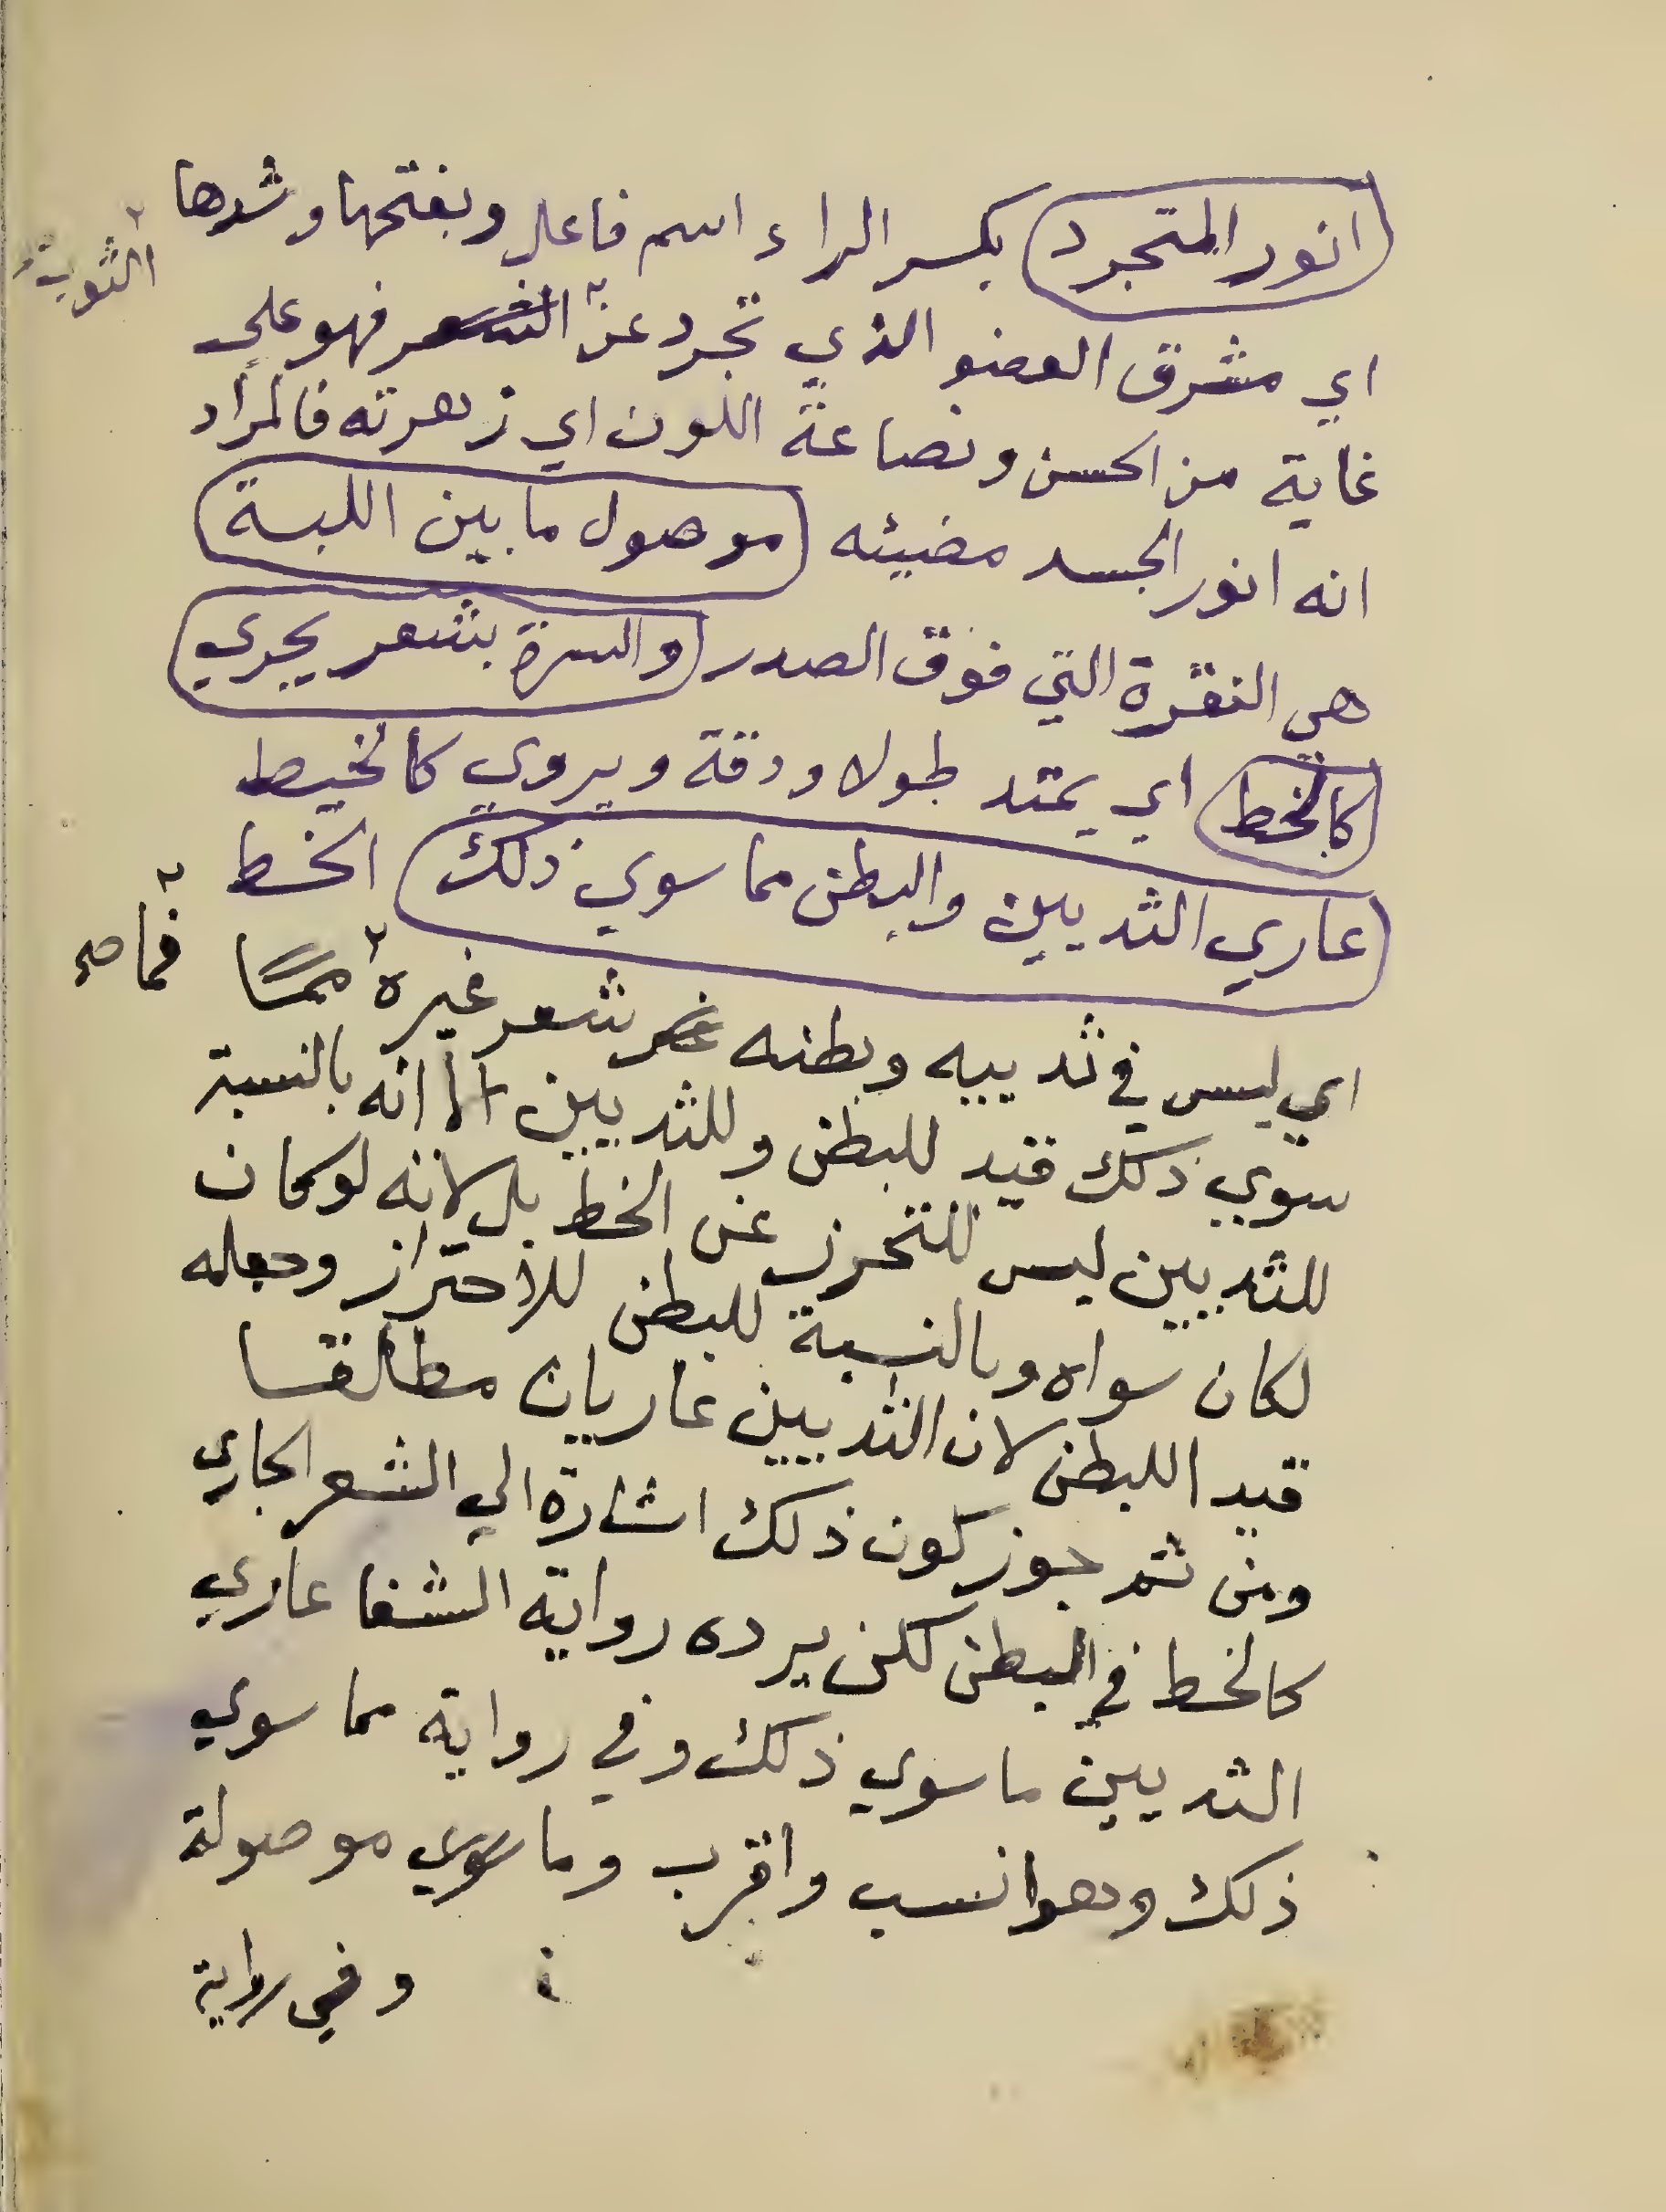 انور المتجرد بكسر الراء اسم فاعل وبفتحها وشدها
اي مشرق العضو الذي تجرد عن الشعر فهو على
غاية من الحسن ونصاعة اللون اي زهرته فالمراد
انه انور الجسد مضيئه موصول ما بين اللبة
هي النقرة التي فوق الصدر والسرة بشعر يجري
كالخط اي يمتد طولا ودقة ويروي كالخيط
عاري الثديين والبطن مما سوي ذلك الخط
اي ليس في ثدييه وبطنه شعر غيره
سوي ذلك قيد للبطن وللثديين الا انه بالنسبة
للثديين ليس للتحرز عن الخط بل لانه لو كان
لكان سواه وبالنسبة للبطن للاحتراز وجعله
قيد اللبطن لان الثديين عاريان مطلقا
ومن ثم جوز كون ذلك اشارة الي الشعر الجاري
كالخط في البطن لكن يرده رواية الشفا عاري
الثديين ما سوي ذلك وفي رواية مما سوي
ذلك وهو انسب واقرب وما سوي موصولة
وفي رواية
الثوب
فما صح